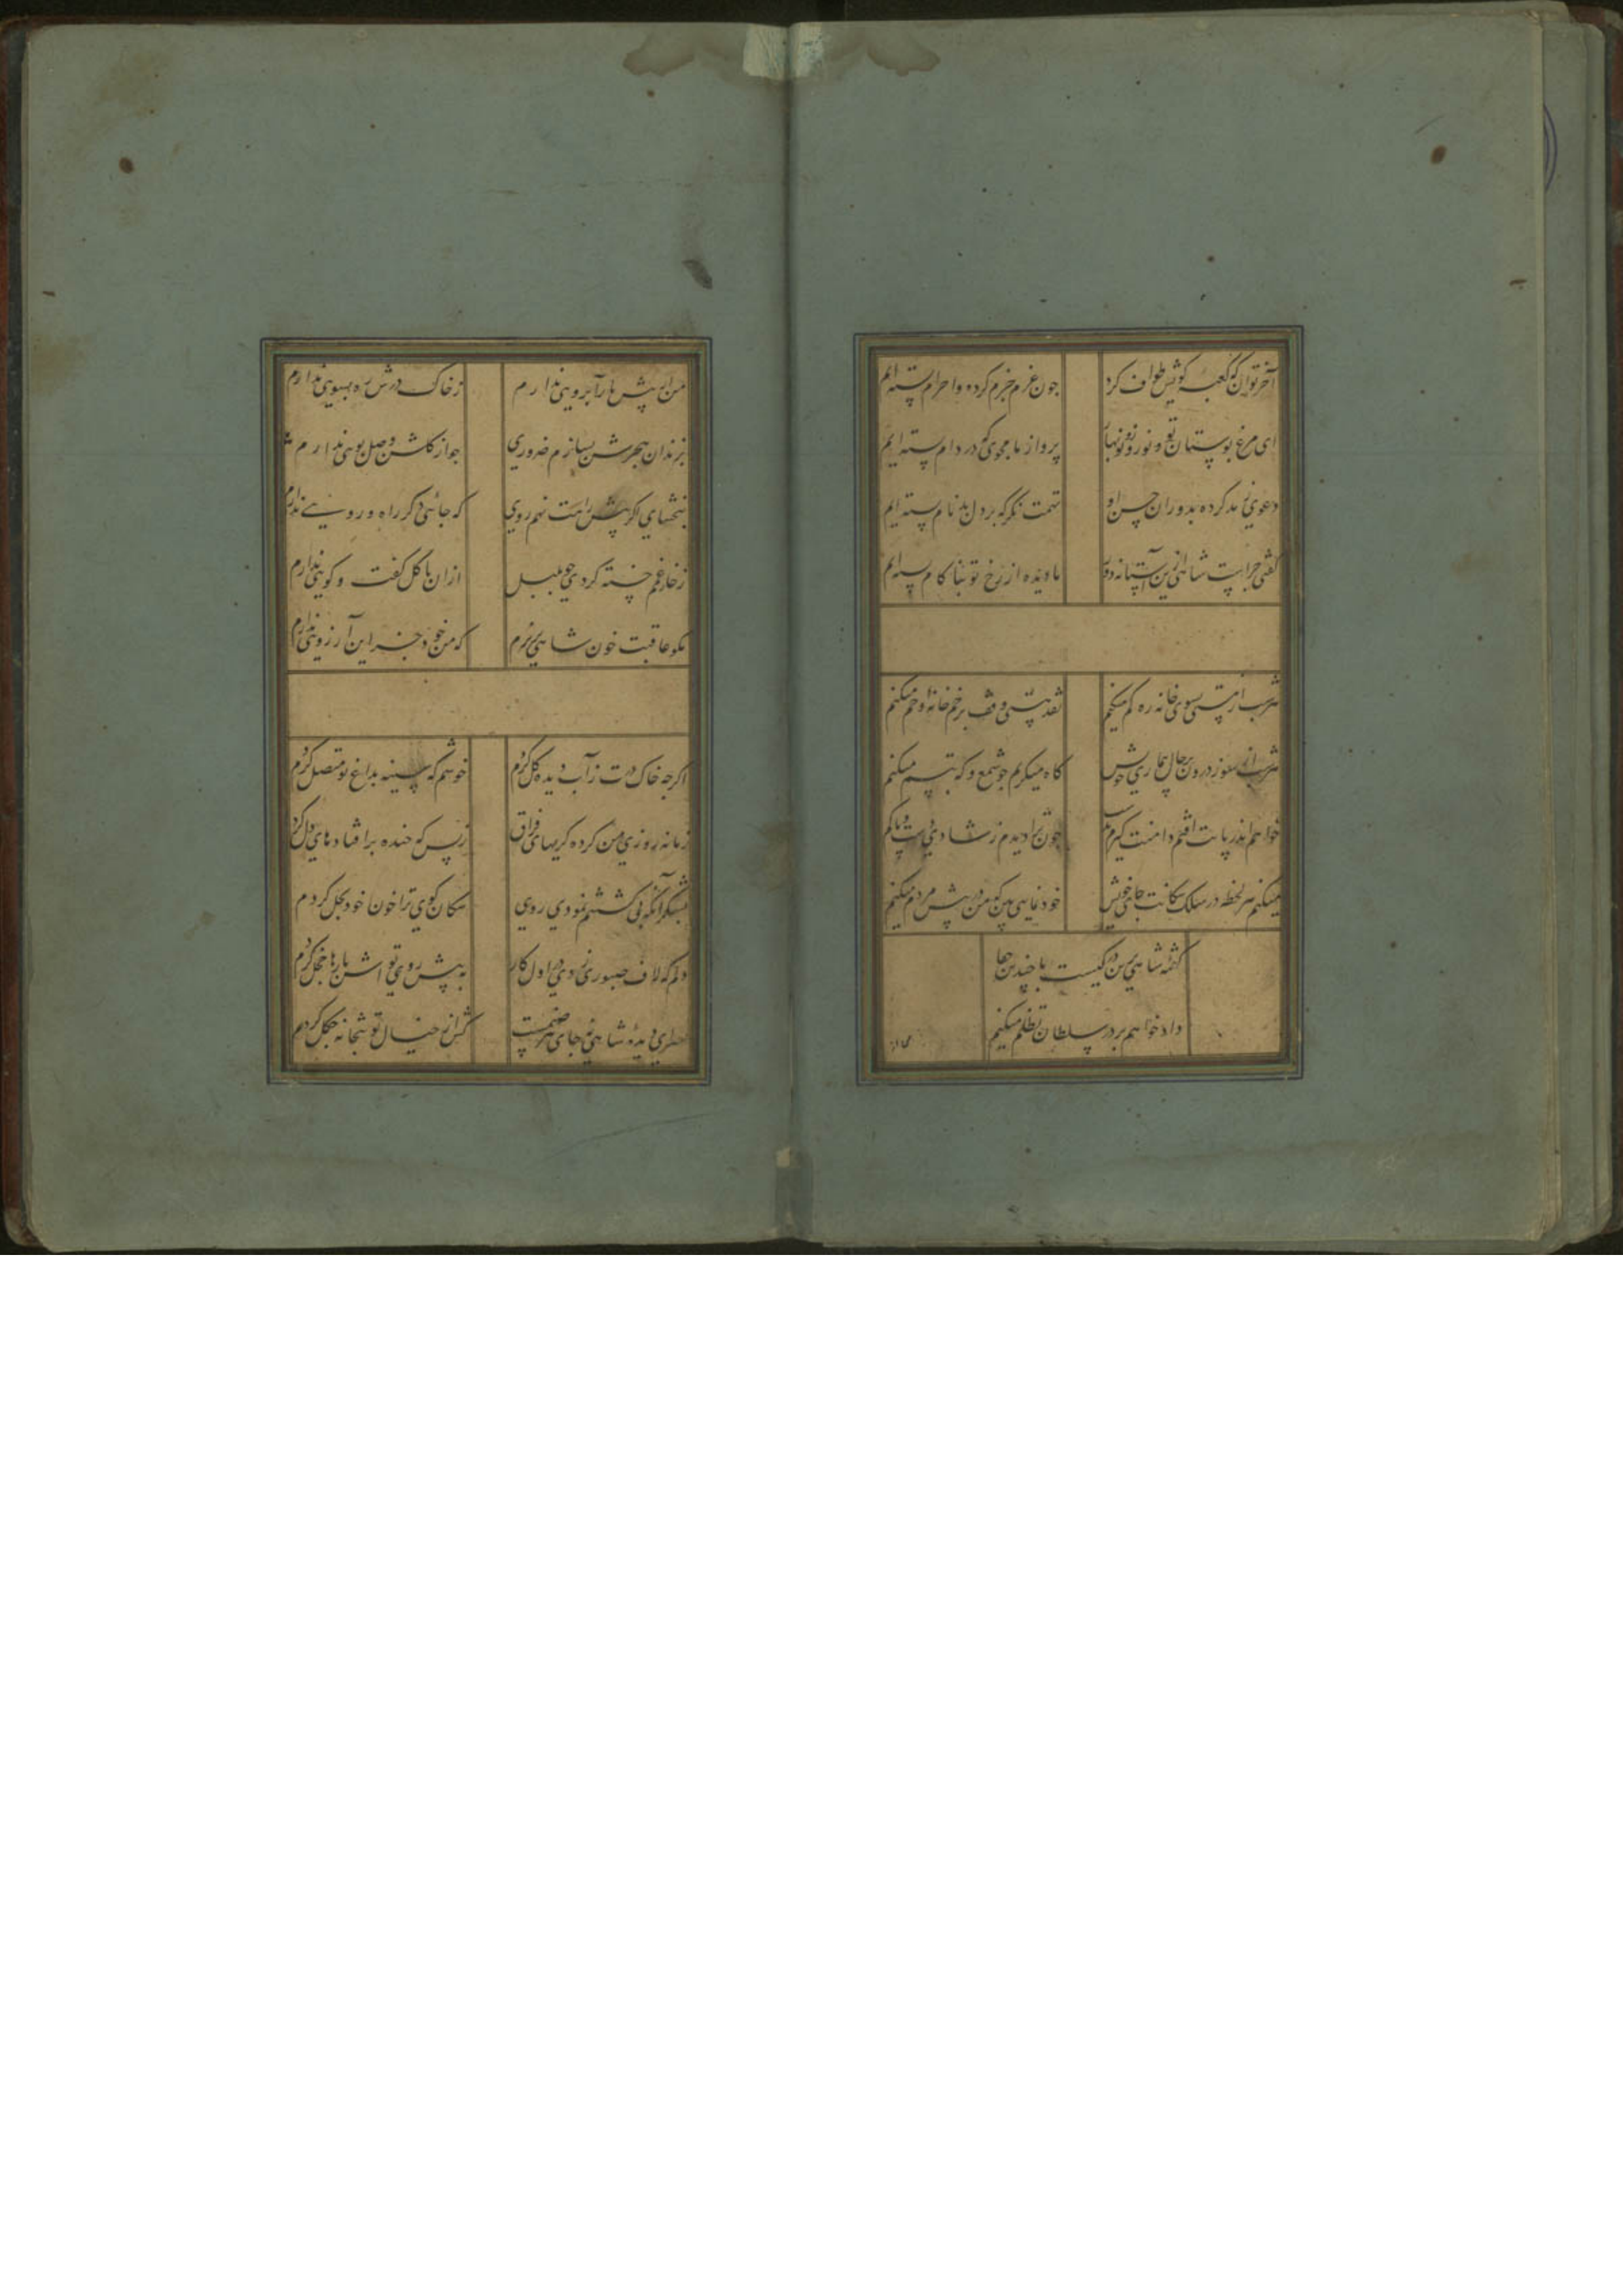 آخر توان که کعبه کویش طواف کرد
چون عزم جزم کرده و احرام بسته ایم
ای مرغ بوستان تو و نوروز و نوبهار
پرواز ما مجوی که در دام بسته ایم
دعوی مه کرده بدوران حسن او
تهمت نکر که بر دل بدنام بسته ایم
کفتی چراست شاهی ازین آستانه دور
ما دیده از رخ تو بناکام بسته ایم
هر شب از مستی بسوی خانه ره کم میکنم
نقد هستی وقف بر خمخانه و خم میکنم
هر شب از سوز درون بر حال بیماری خویش
کاه میکریم چو شمع و که تبسم میکنم
خواهم اندر پایت افتم دامنت کیرم
چون ترا دیدم ز شادی دست و پا کم
میکنم هر لحظه در سلک سکانت جای خویش
خودنمایی بین که من در پیش مردم میکنم
کفتمه شاهی برین در کیست با چندین جفا
دادخواهم بر در سلطان تظلم میکنم
من از پیش یار آبرویی ندارم
ز خاک درش ره بسویی ندارم
بزندان هجرش بسازم ضروری
چو از کلشن وصل بویی ندارم
ببخشای اکر پیش راهت نهم روی
که جائی دکر راه و رویی ندارم
ز خار غم خسته کردی چو بلبل
از آن با کل کفت و کویی ندارم
مکو عاقبت خون شاهی بریزم
که من خود جز این آرزویی ندارم
اکرچه خاک درت ز آب دیده کل کردم
خوشم که سینه بداغ تو متصل کردم
زمانه روزی من کرده کریهای فراق
ز بس که خنده بر افتادهای دل کرد
بشکر آنکه پی کشتنم نمودی روی
سکان کوی ترا خون خود بحل کردم
دلم که لاف صبوری زدی در اول کار
به پیش روی تو اش بارها خجل کردم
دیده شاهی نه جای هر صنمست
کش از خیال تو بتخانه چکل کردم